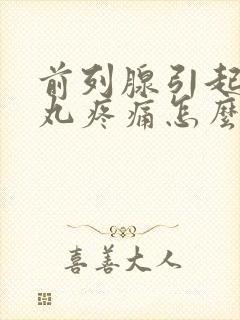 前列腺引起
丸疼痛怎麼
喜善大人